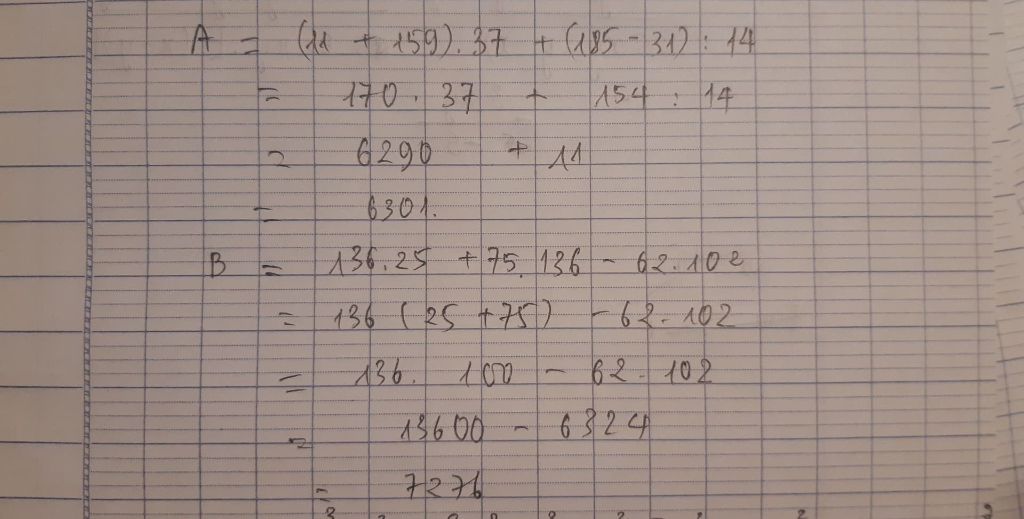 A = (11 + 159).37 + (185 - 31) : 14
= 170 . 37 + 154 : 14
= 6290 + 11
= 6301.
B = 136.25 + 75.136 - 62.102
= 136 (25 + 75) - 62.102
= 136. 100 - 62.102
= 13600 - 6324
= 7276